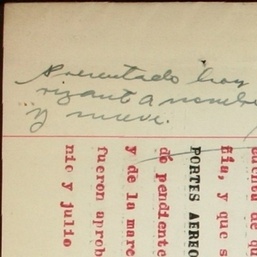 Presentado hoy
a nombre
y nueve.
cuenta de qu
ñía, y que s
PORTES AEREO
do pendiente
y de la marc
fueron aprob
nio y julio